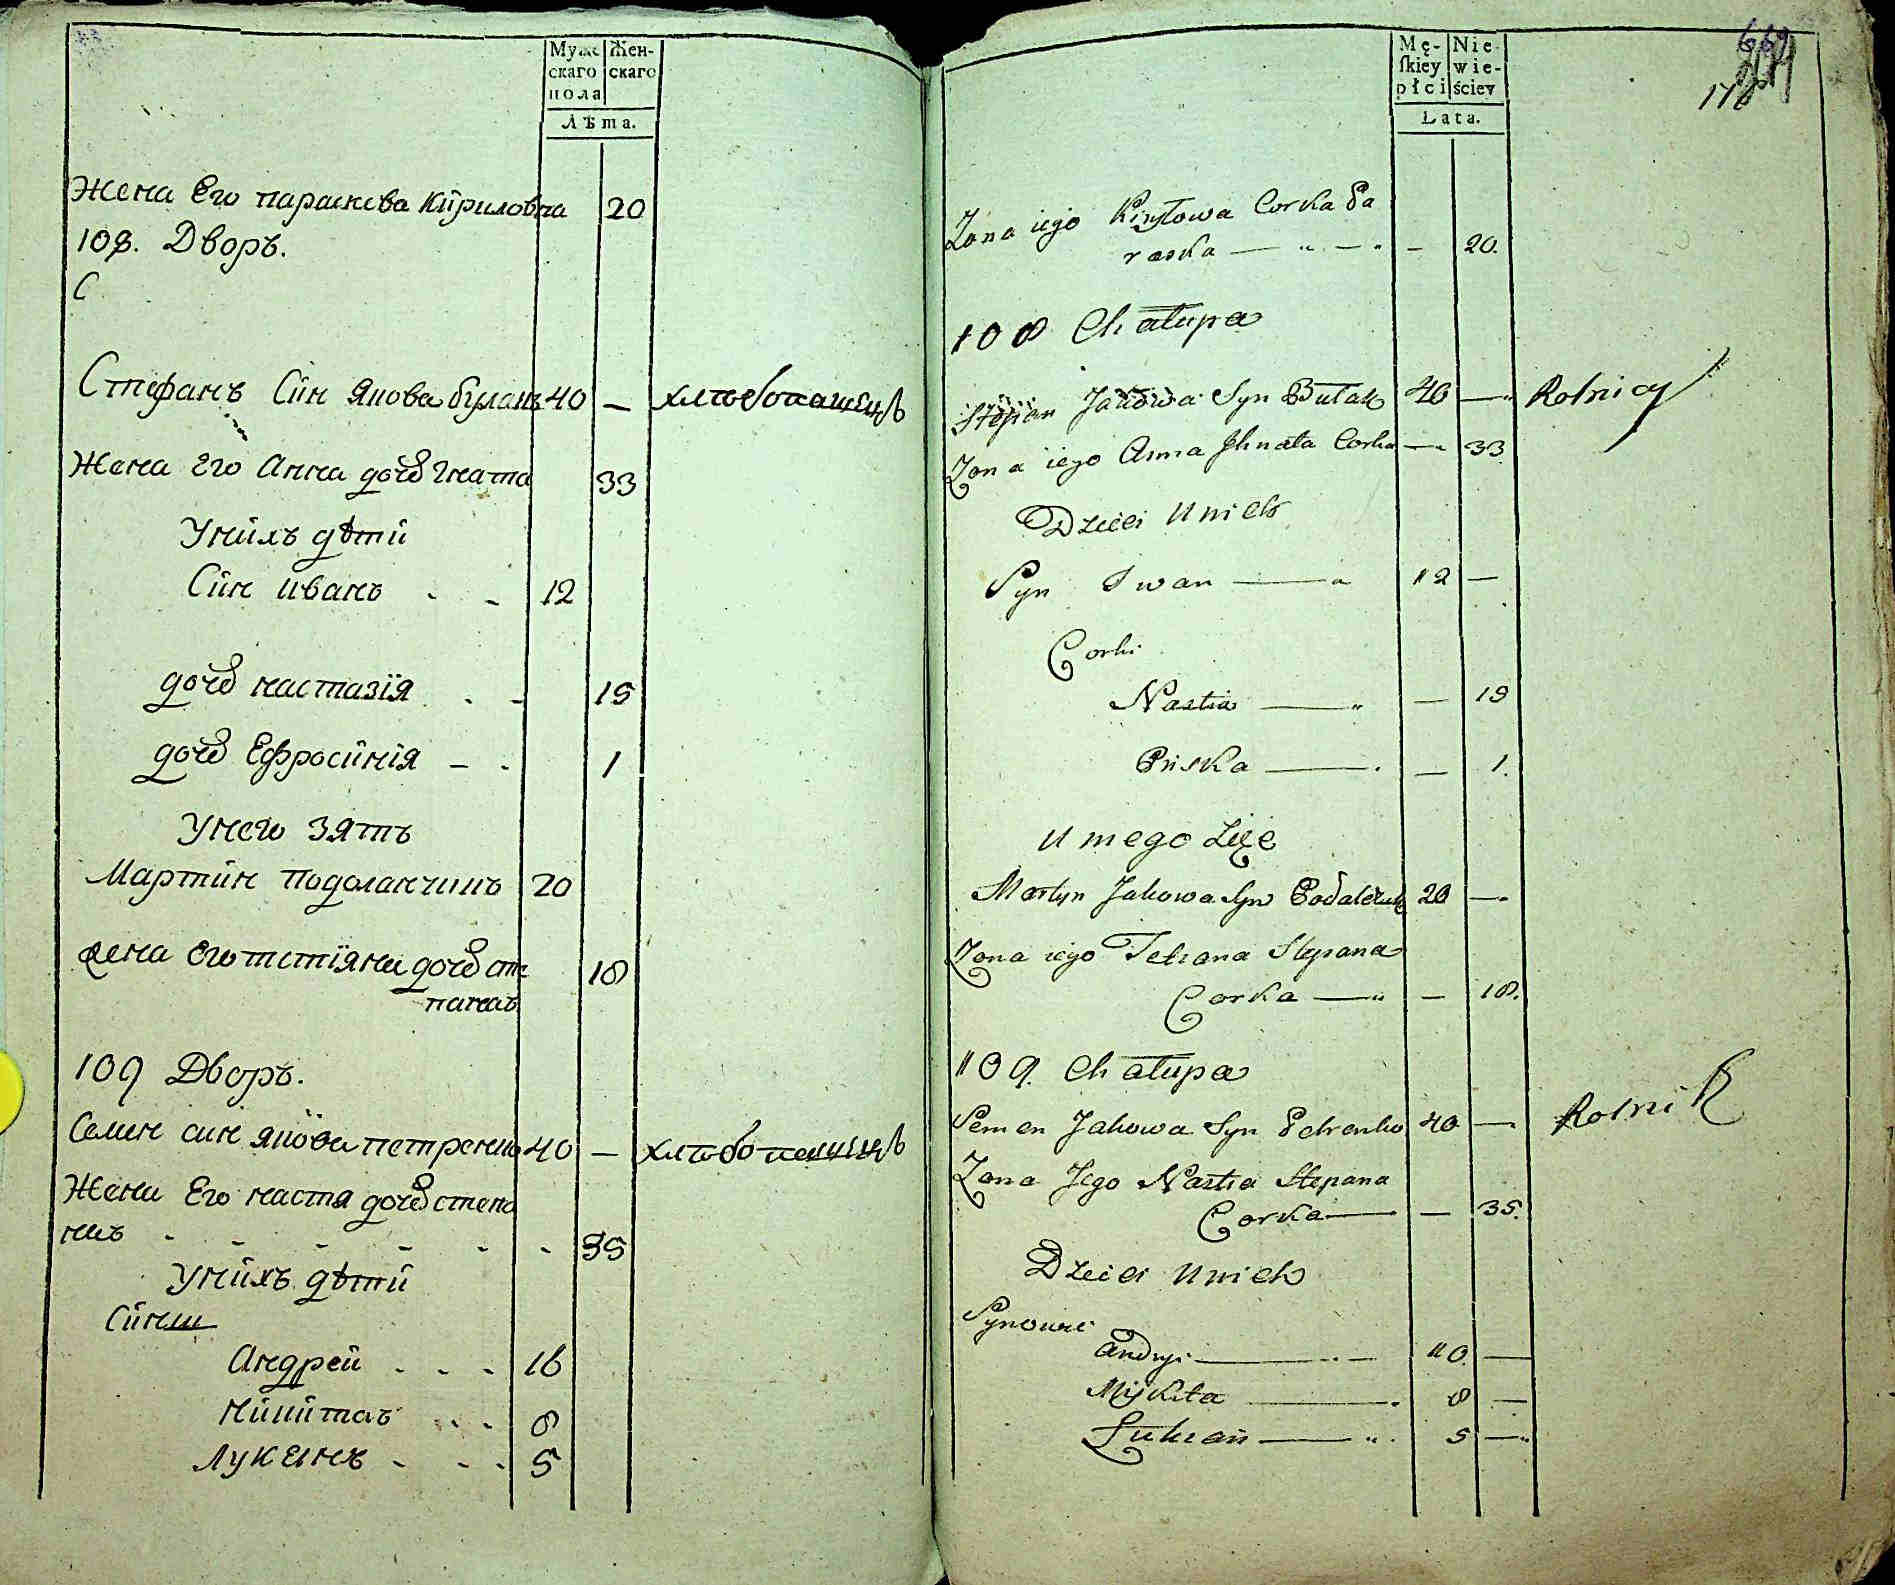 Муже Жен-
скаго скаго
пола
Лѣта.
Жена Его параскева Кйриловна 20
108. Дворъ.
С
Стефанъ Сйн Якова булакъ 40 — хлѣбопашецъ
Жена Его Анна дочь Гната 33
Унйхъ дѣтй
Сйн иванъ - - 12
дочь настазїя . - 15
дочь Ефросйнїя - - 1
Унего зять
Мартйн подоланчикъ 20
жена Его тетїяна дочь сте 18
пана
109 Дворъ.
Семен син якова петренко 40 — хлѣбопашецъ
Жена Его настя дочь степа
на - - - - - - 35
Унйхъ дѣтй
Сйны
Андрей - - - 16
Нйкйта - - 8
Лукьянъ - - - 5
Mę- Nie-
ſkiey wie-
płci ściey
Lata.
176
Zona iego Kiryłowa Corka Pa
raska — - — - — 20.
108 Chałupa
Stepan Jakowa Syn Bułak 40 — Rolnicy
Zona iego Anna Ihnata Corka — 33
Dzieci unich
Syn Iwan — 12 —
Corki
Nastia — — 15
Priska — — 1.
u niego Zięc
Martyn Jakowa Syn Podalczuk 20 —
Zona iego Tetiana Stepana
Corka — — 18.
109. Chałupa
Semen Jakowa Syn Petrenko 40 — Rolnik
Zona Jego Nastia Stepana
Corka — — 35.
Dzieci unich
Synowie
Andryi — 10. —
Mykita — 8 —
Lukian — 5 —